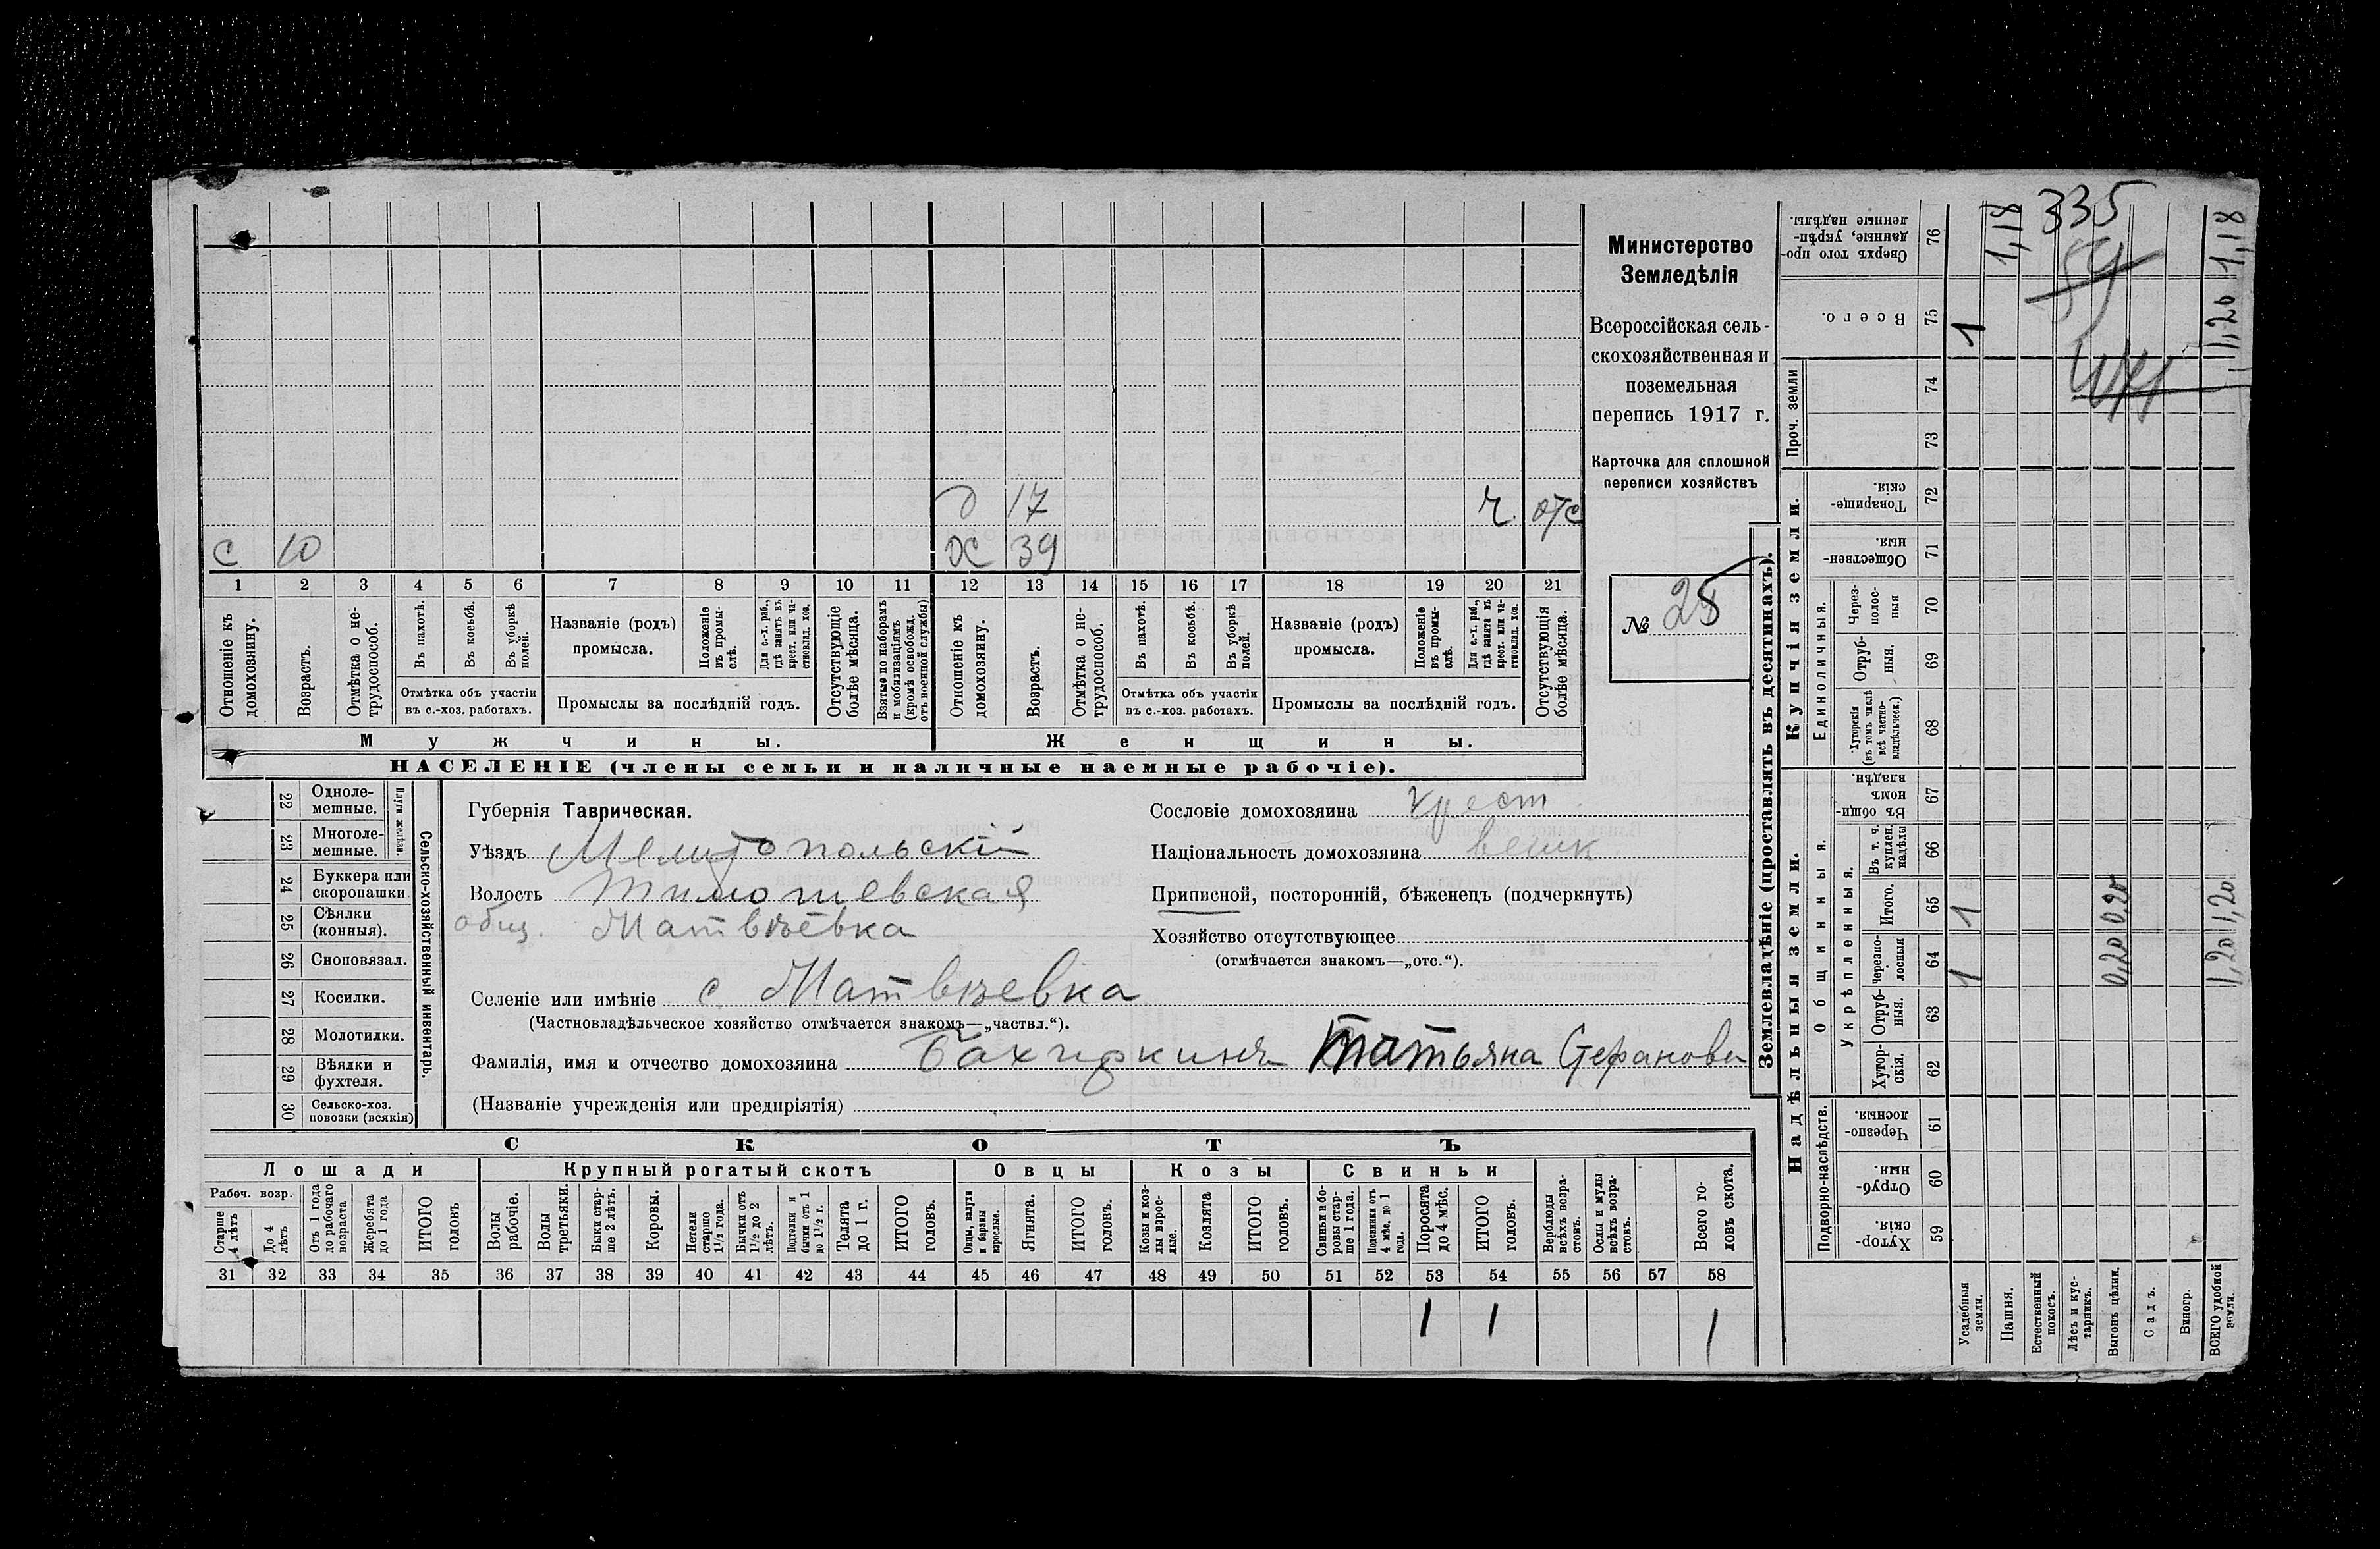 Министерство
Земледѣлія
Всероссійская сель-
скохозяйственная и
поземельная
перепись 1917 г.
Карточка для сплошной
переписи хозяйствъ
№ 28
335
59
д 17 ч. отс
с 10 ОХ 39
1 2 3 4 5 6 7 8 9 10 11 12 13 14 15 16 17 18 19 20 21
Отношеніе къ домохозяину.
Возрастъ.
Отмѣтка о не-трудоспособ.
Въ пахотѣ.
Въ косьбѣ.
Въ уборкѣ полей.
Отмѣтка объ участіи въ с.-хоз. работахъ.
Названіе (родъ) промысла.
Положеніе въ промы-слѣ.
Для с.-х. раб., гдѣ занятъ въ крест. или ча-стновлад. хоз.
Промыслы за послѣдній годъ.
Отсутствующіе болѣе мѣсяца.
Взятые по наборамъ и мобилизаціямъ (кромѣ освобожд. отъ военной службы)
Отношеніе къ домохозяину.
Возрастъ.
Отмѣтка о не-трудоспособ.
Въ пахотѣ.
Въ косьбѣ.
Въ уборкѣ полей.
Отмѣтка объ участіи въ с.-хоз. работахъ.
Названіе (родъ) промысла.
Положеніе въ промы-слѣ.
Для с.-х. раб., гдѣ занята въ крест. или ча-стновлад. хоз.
Промыслы за послѣдній годъ.
Отсутствующія болѣе мѣсяца.
Мужчины. Женщины.
НАСЕЛЕНІЕ (члены семьи и наличные наемные рабочіе).
Сельско-хозяйственный инвентарь.
Плуги желѣзн.
22 Одноле-мешные.
23 Многоле-мешные.
24 Буккера или скоропашки
25 Сѣялки (конныя).
26 Сноповязал.
27 Косилки.
28 Молотилки.
29 Вѣялки и фухтеля.
30 Сельско-хоз. повозки (всякія)
Губернія Таврическая.
Уѣздъ Мелитопольскій
Волость Тимошевская
общ. Матвѣевка
Селеніе или имѣніе с Матвѣевка
(Частновладѣльческое хозяйство отмѣчается знакомъ—„частвл.“).
Фамилія, имя и отчество домохозяина Татьяна Стефанова
(Названіе учрежденія или предпріятія)
Сословіе домохозяина крест
Національность домохозяина
Приписной, посторонній, бѣженецъ (подчеркнуть)
Хозяйство отсутствующее
(отмѣчается знакомъ—„отс.“).
СКОТЪ
Лошади Крупный рогатый скотъ Овцы Козы Свиньи
Рабоч. возр.
Старше 4 лѣтъ
До 4 лѣтъ
Отъ 1 года до рабочаго возраста
Жеребята до 1 года
ИТОГО головъ
Волы рабочіе.
Волы третьяки.
Быки стар-ше 2 лѣтъ.
Коровы.
Нетели старше 1½ года.
Бычки отъ 1½ до 2 лѣтъ.
Подтелки и бычки отъ 1 до 1½ г.
Телята до 1 г.
ИТОГО головъ.
Овцы, валухи и бараны взрослые.
Ягнята.
ИТОГО головъ.
Козы и коз-лы взрос-лые.
Козлята
ИТОГО головъ.
Свиньи и бо-ровы стар-ше 1 года.
Подсвинки отъ 4 мѣс. до 1 года.
Поросята до 4 мѣс.
ИТОГО головъ.
Верблюды всѣхъ возра-стовъ.
Ослы и мулы всѣхъ возра-стовъ.
Всего го-ловъ скота.
31 32 33 34 35 36 37 38 39 40 41 42 43 44 45 46 47 48 49 50 51 52 53 54 55 56 57 58
1 1 1
Землевладѣніе (проставлять въ десятинахъ).
Надѣльныя земли. Купчія земли. Проч. земли
Подворно-наслѣдств. Общинныя. Единоличныя.
Укрѣпленныя.
Хутор-скія. 59
Отруб-ныя. 60
Черезпо-лосныя 61
Хутор-скія. 62
Отруб-ныя. 63
Черезпо-лосныя 64
Итого. 65
Въ т. ч. куплен. надѣлы 66
Въ общи-номъ владѣн. 67
Хуторскія (въ томъ числѣ всѣ частно-владѣльческ.) 68
Отруб-ныя. 69
Через-полос-ныя 70
Обществен-ныя. 71
Товарище-скія. 72
73
74
Всего. 75
Сверхъ того про-данные, укрѣп-ленные надѣлы. 76
Усадебныя земли. 1 1 1
Пашня. 1,18
Естественный покосъ.
Лѣсъ и кус-тарникъ.
Выгонъ цѣлин. 0,20 0,20
Садъ.
Виногр.
ВСЕГО удобной земли. 1,20 1,20 1,20 1,18